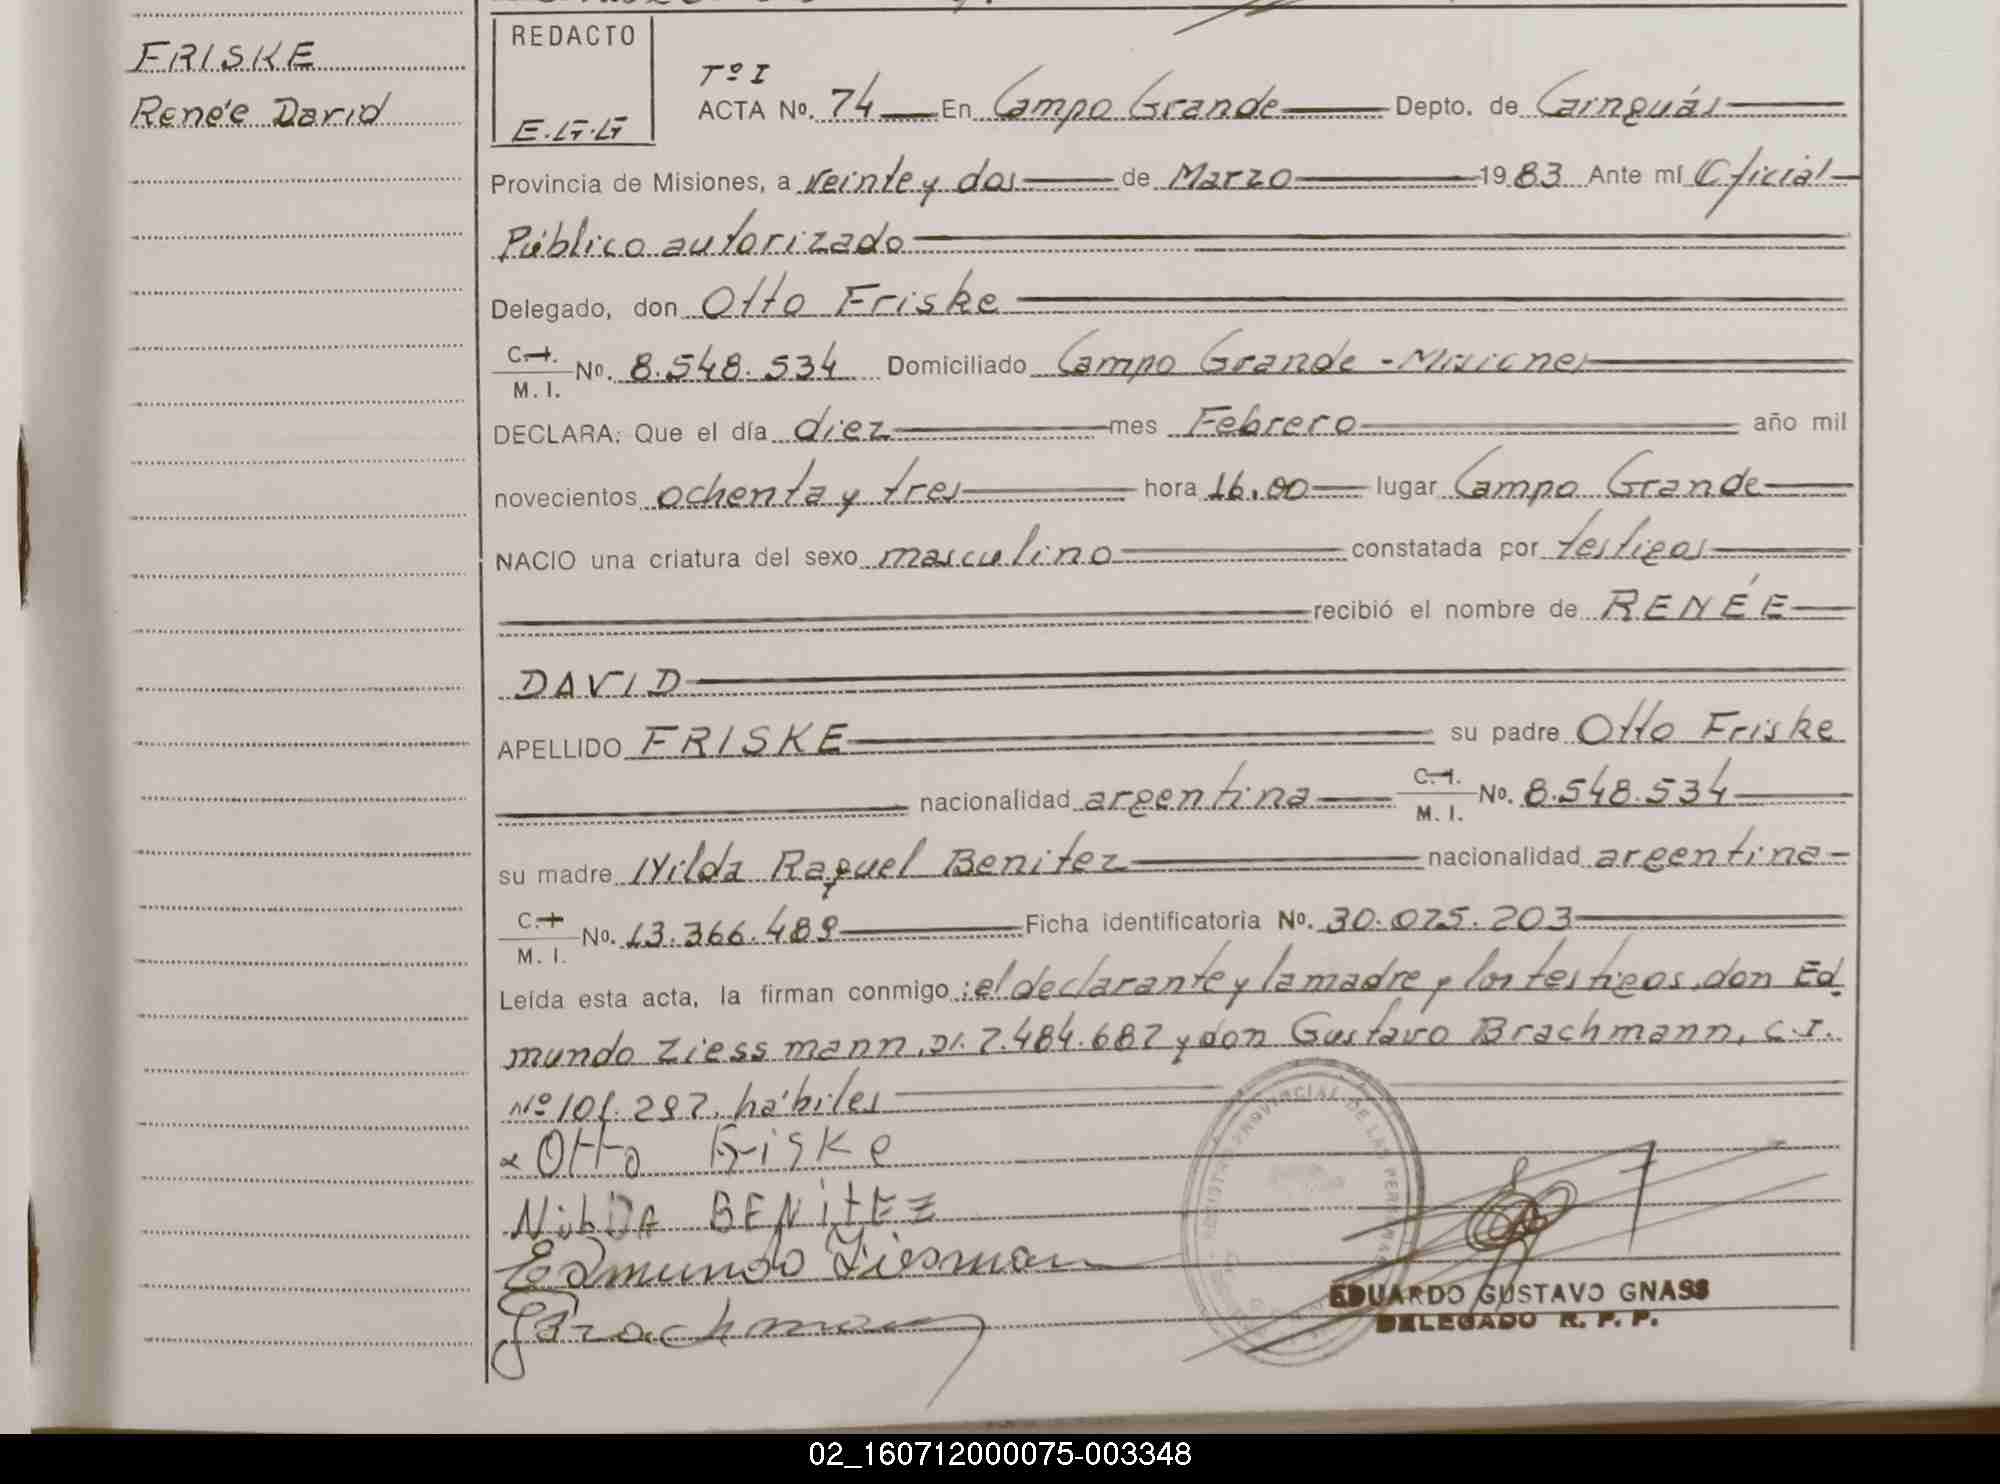 FRISKE
Renée David
REDACTO
E.G.G
Tº I
ACTA Nº. 74 En Campo Grande Depto. de Cainguás
Provincia de Misiones, a veinte y dos de Marzo 1983 Ante mí Oficial
Público autorizado
Delegado, don Otto Friske
C.I.
M. I. Nº. 8.548.534 Domiciliado Campo Grande - Misiones
DECLARA: Que el día diez mes Febrero año mil
novecientos ochenta y tres hora 16.00 lugar Campo Grande
NACIO una criatura del sexo masculino constatada por testigos
recibió el nombre de RENÉE
DAVID
APELLIDO FRISKE su padre Otto Friske
nacionalidad argentina C.I.
M. I. Nº. 8.548.534
su madre Nilda Raquel Benitez nacionalidad argentina
C.I.
M. I. Nº. 13.366.489 Ficha identificatoria Nº. 30.075.203
Leída esta acta, la firman conmigo: el declarante y la madre y los testigos, don Ed
mundo Ziessmann, 7.484.687 y don Gustavo Brachmann, C.I.
Nº 101.297, hábiles
Otto Friske
NilDA BENitEZ
Edmundo Ziesman
GBrachmann
REGISTRO PROVINCIAL DE LAS PERSONAS
EDUARDO GUSTAVO GNASS
DELEGADO R. P. P.
02_160712000075-003348